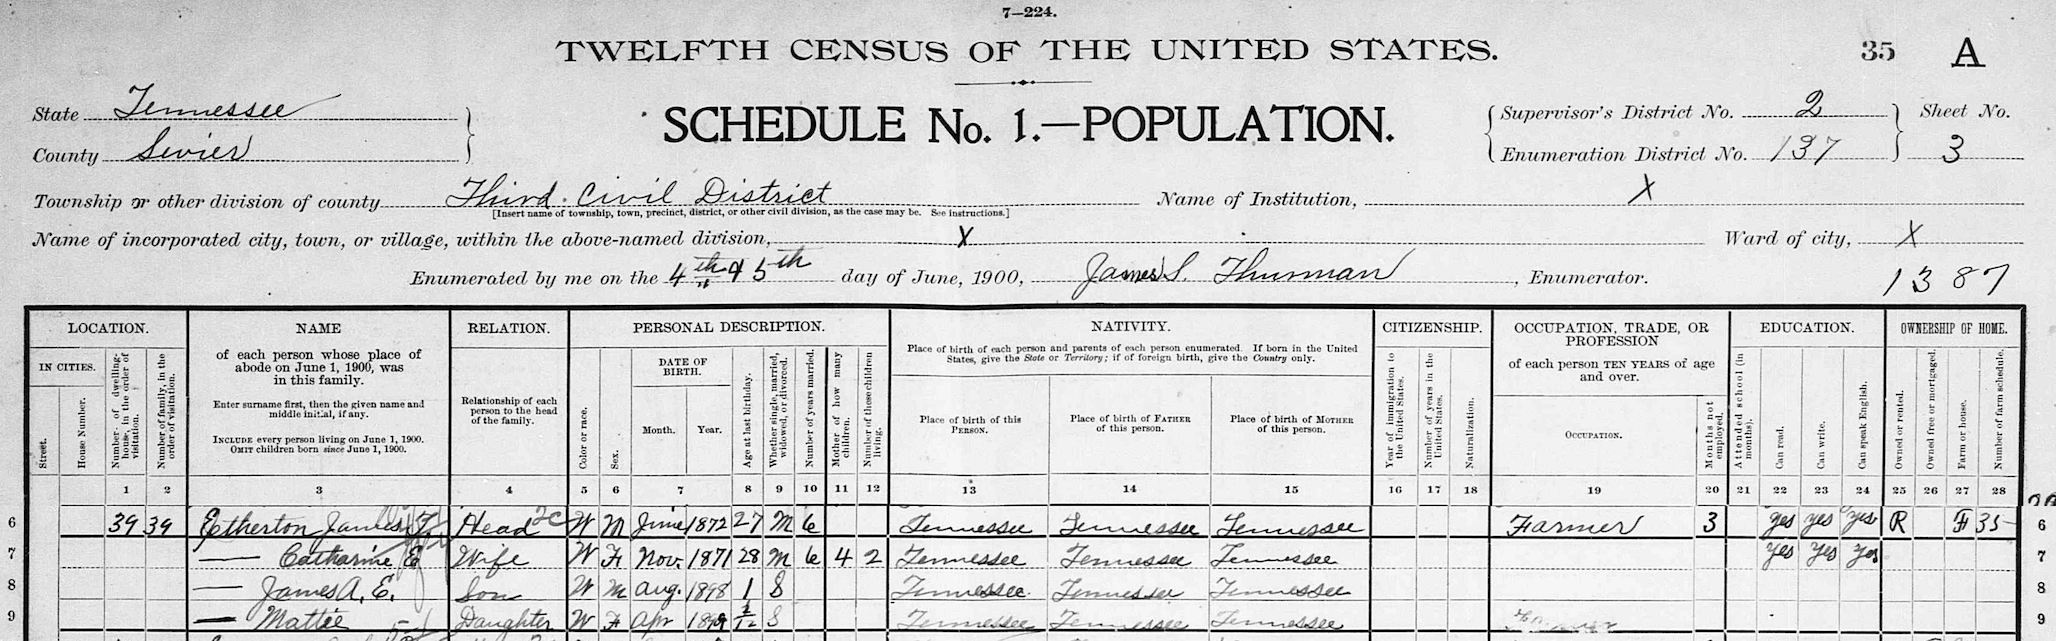 7—224.
TWELFTH CENSUS OF THE UNITED STATES.
35 A
State Tennessee
County Sevier
SCHEDULE No. 1.—POPULATION.
Supervisor's District No. 2
Enumeration District No. 137
Sheet No.
3
Township or other division of county Third Civil District
[Insert name of township, town, precinct, district, or other civil division, as the case may be. See instructions.]
Name of Institution, X
Name of incorporated city, town, or village, within the above-named division, X
Ward of city, X
Enumerated by me on the 4th & 5th day of June, 1900, James S. Thurman, Enumerator.
1387
LOCATION.
IN CITIES.
Street.
House Number.
Number of dwelling-house, in the order of visitation.
Number of family, in the order of visitation.
NAME
of each person whose place of
abode on June 1, 1900, was
in this family.
Enter surname first, then the given name and
middle initial, if any.
INCLUDE every person living on June 1, 1900.
OMIT children born since June 1, 1900.
RELATION.
Relationship of each
person to the head
of the family.
PERSONAL DESCRIPTION.
Color or race.
Sex.
DATE OF
BIRTH.
Month. Year.
Age at last birthday.
Whether single, married, widowed, or divorced.
Number of years married.
Mother of how many children.
Number of these children living.
NATIVITY.
Place of birth of each person and parents of each person enumerated. If born in the United
States, give the State or Territory; if of foreign birth, give the Country only.
Place of birth of this
PERSON.
Place of birth of FATHER
of this person.
Place of birth of MOTHER
of this person.
CITIZENSHIP.
Year of immigration to the United States.
Number of years in the United States.
Naturalization.
OCCUPATION, TRADE, OR
PROFESSION
of each person TEN YEARS of age
and over.
OCCUPATION.
Months not employed.
EDUCATION.
Attended school (in months).
Can read.
Can write.
Can speak English.
OWNERSHIP OF HOME.
Owned or rented.
Owned free or mortgaged.
Farm or house.
Number of farm schedule.
1 2 3 4 5 6 7 8 9 10 11 12 13 14 15 16 17 18 19 20 21 22 23 24 25 26 27 28
6 39 39 Etherton James F Head W M June 1872 27 M 6 Tennessee Tennessee Tennessee Farmer 3 yes yes yes R F 35 6
7 — Catharine E Wife W F Nov. 1871 28 M 6 4 2 Tennessee Tennessee Tennessee Yes Yes Yes 7
8 — James A. E. Son W M Aug. 1898 1 S Tennessee Tennessee Tennessee 8
9 — Mattie Daughter W F Apr S Tennessee Tennessee Tennessee 9